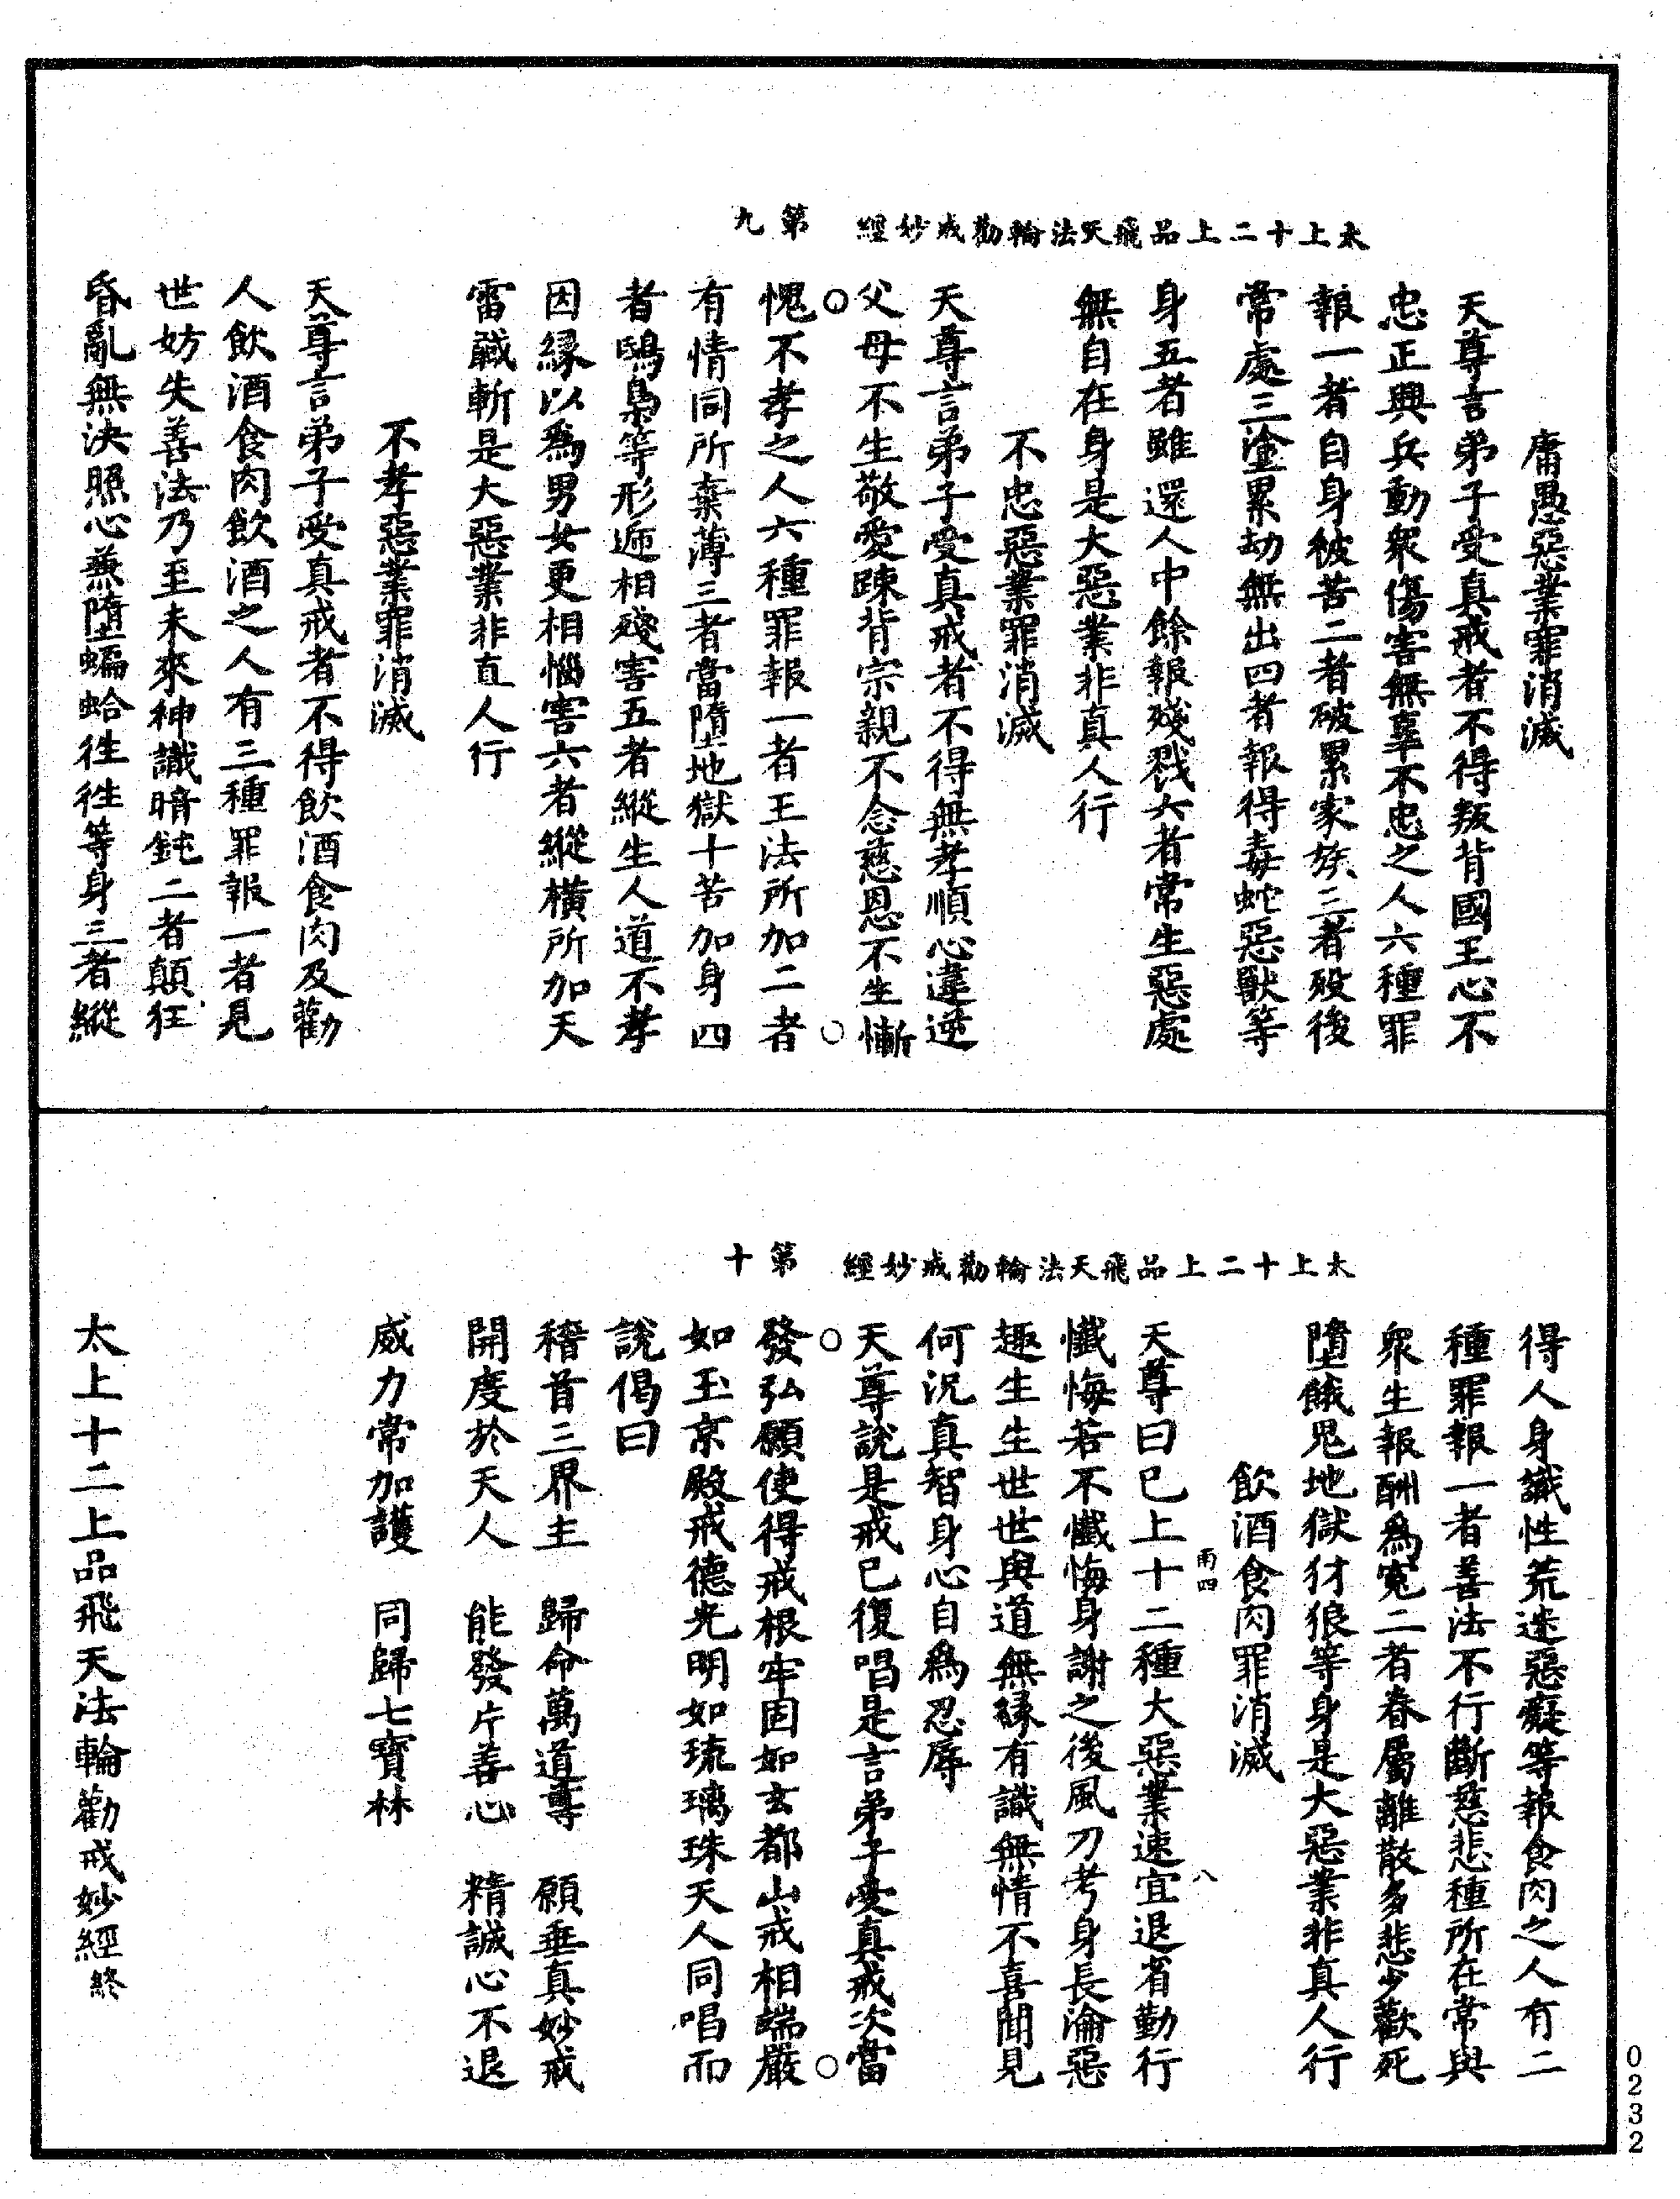 太上十二上品飛天法輪勸戒妙經　第九
庸愚惡業罪消滅
天尊言弟子受真戒者不得叛背國王心不
忠正興兵動衆傷害無辜不忠之人六種罪
報一者自身被苦二者破累家族三者殁後
常處三塗累劫無出四者報得毒蛇惡獸等
身五者雖還人中餘報殘戮六者常生惡處
無自在身是大惡業非真人行
不忠惡業罪消滅
天尊言弟子受真戒者不得無孝順心違逆
父母不生敬愛踈背宗親不念慈恩不生慚
愧不孝之人六種罪報一者王法所加二者
有情同所棄薄三者當墮地獄十苦加身四
者鴟梟等形遞相殘害五者縱生人道不孝
因緣以爲男女更相惱害六者縱橫所加天
雷㽷斬是大惡業非直人行
不孝惡業罪消滅
天尊言弟子受真戒者不得飲酒食肉及勸
人飲酒食肉飲酒之人有三種罪報一者見
世妨失善法乃至未來神識暗鈍二者顛狂
昏亂無決照心兼墮蝙蛤徃徃等身三者縱
太上十二上品飛天法輪勸戒妙經　第十
得人身識性荒迷惡癡等報食肉之人有二
種罪報一者善法不行斷慈悲種所在常與
衆生報酬爲寃二者眷屬離散多悲少歡死
墮餓鬼地獄豺狼等身是大惡業非真人行
飲酒食肉罪消滅
雨四　八
天尊曰已上十二種大惡業速宜退省勤行
懺悔若不懺悔身謝之後風刀考身長淪惡
趣生生世世與道無緣有識無情不喜聞見
何況真智身心自爲忍辱
天尊說是戒已復唱是言弟子受真戒次當
發弘願使得戒根牢固如玄都山戒相端嚴
如玉京殿戒德光明如琉璃珠天人同唱而
說偈曰
稽首三界主　歸命萬道尊　願垂真妙戒
開度於天人　能發片善心　精誠心不退
威力常加護　同歸七寶林
太上十二上品飛天法輪勸戒妙經終
0232